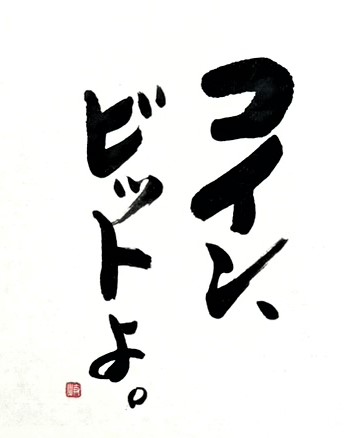 コイン、
ビットよ。